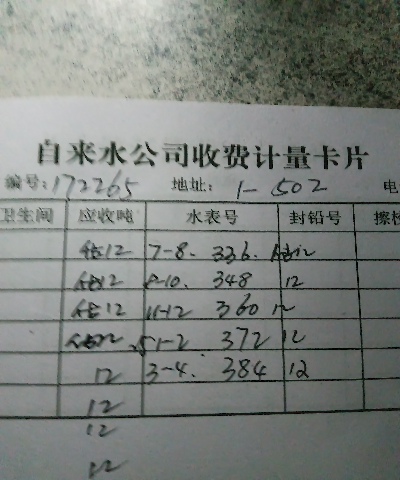 自来水公司收费计量卡片
编号: 172265 地址: 1-502 电
卫生间 应收吨 水表号 封铅号 擦
12 7-8. 336. 12
12 9-10. 348 12
12 11-12 360 12
1-2 372 12
12 3-4. 384 12
12
12
12